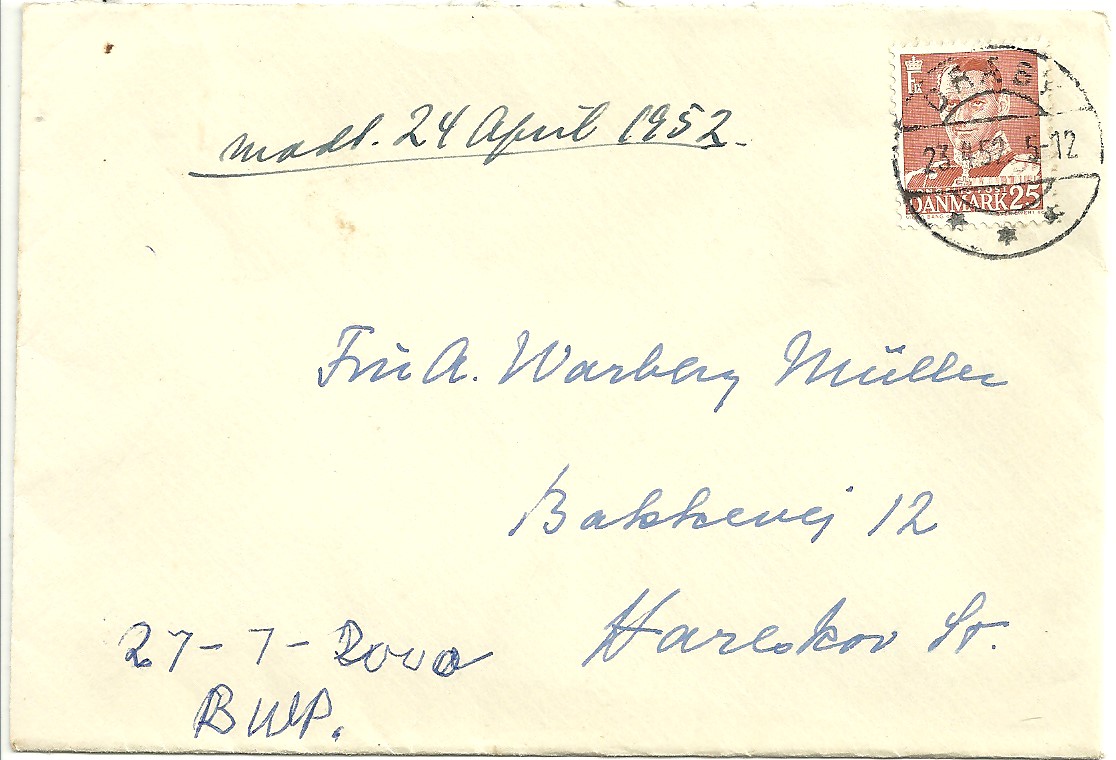 modt. 24 April 1952.
DRAGØR
23.4.52. 5-12
DANMARK 25
Fru A. Warberg Müller
Bakkevej 12
Hareskov St.
27-7-2000
BWP.